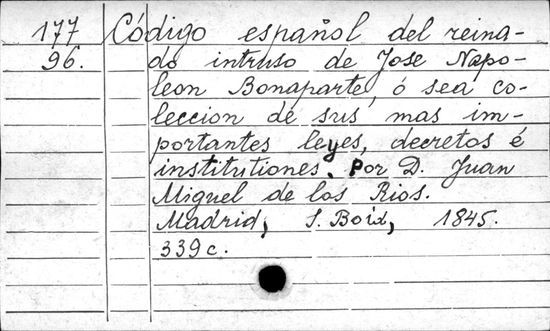 177 Código español del reina-
96. do intruso de Jose Napo-
leon Bonaparte, ó sea co-
leccion de sus mas im-
portantes leyes, decretos é
institutiones. Por D. Juan
Miguel de los Rios.
Madrid, I. Boix, 1845.
339 c.